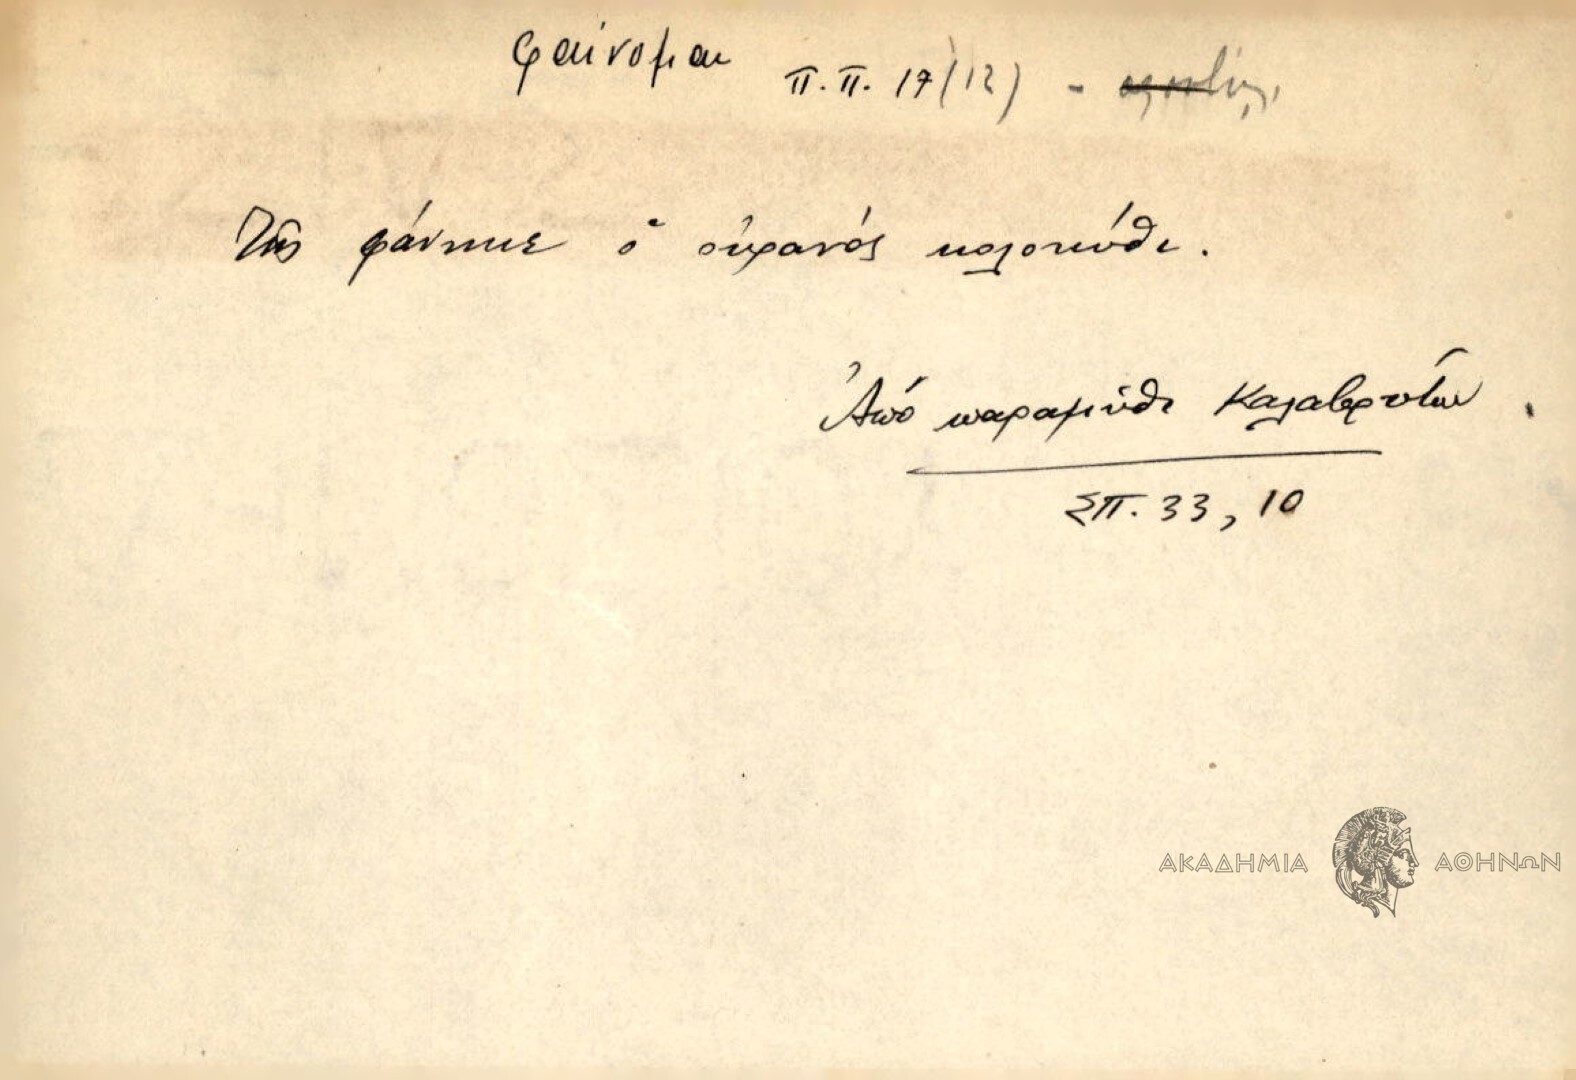 φαίνομαι
π.π. 17 (12) -
Τῆς φάνηκε ὁ οὐρανός κολοκύθι.
Ἀπό παραμύθι Καλαβρύτων
ΣΠ. 33, 10
ΑΚΑΔΗΜΙΑ ΑΘΗΝΩΝ